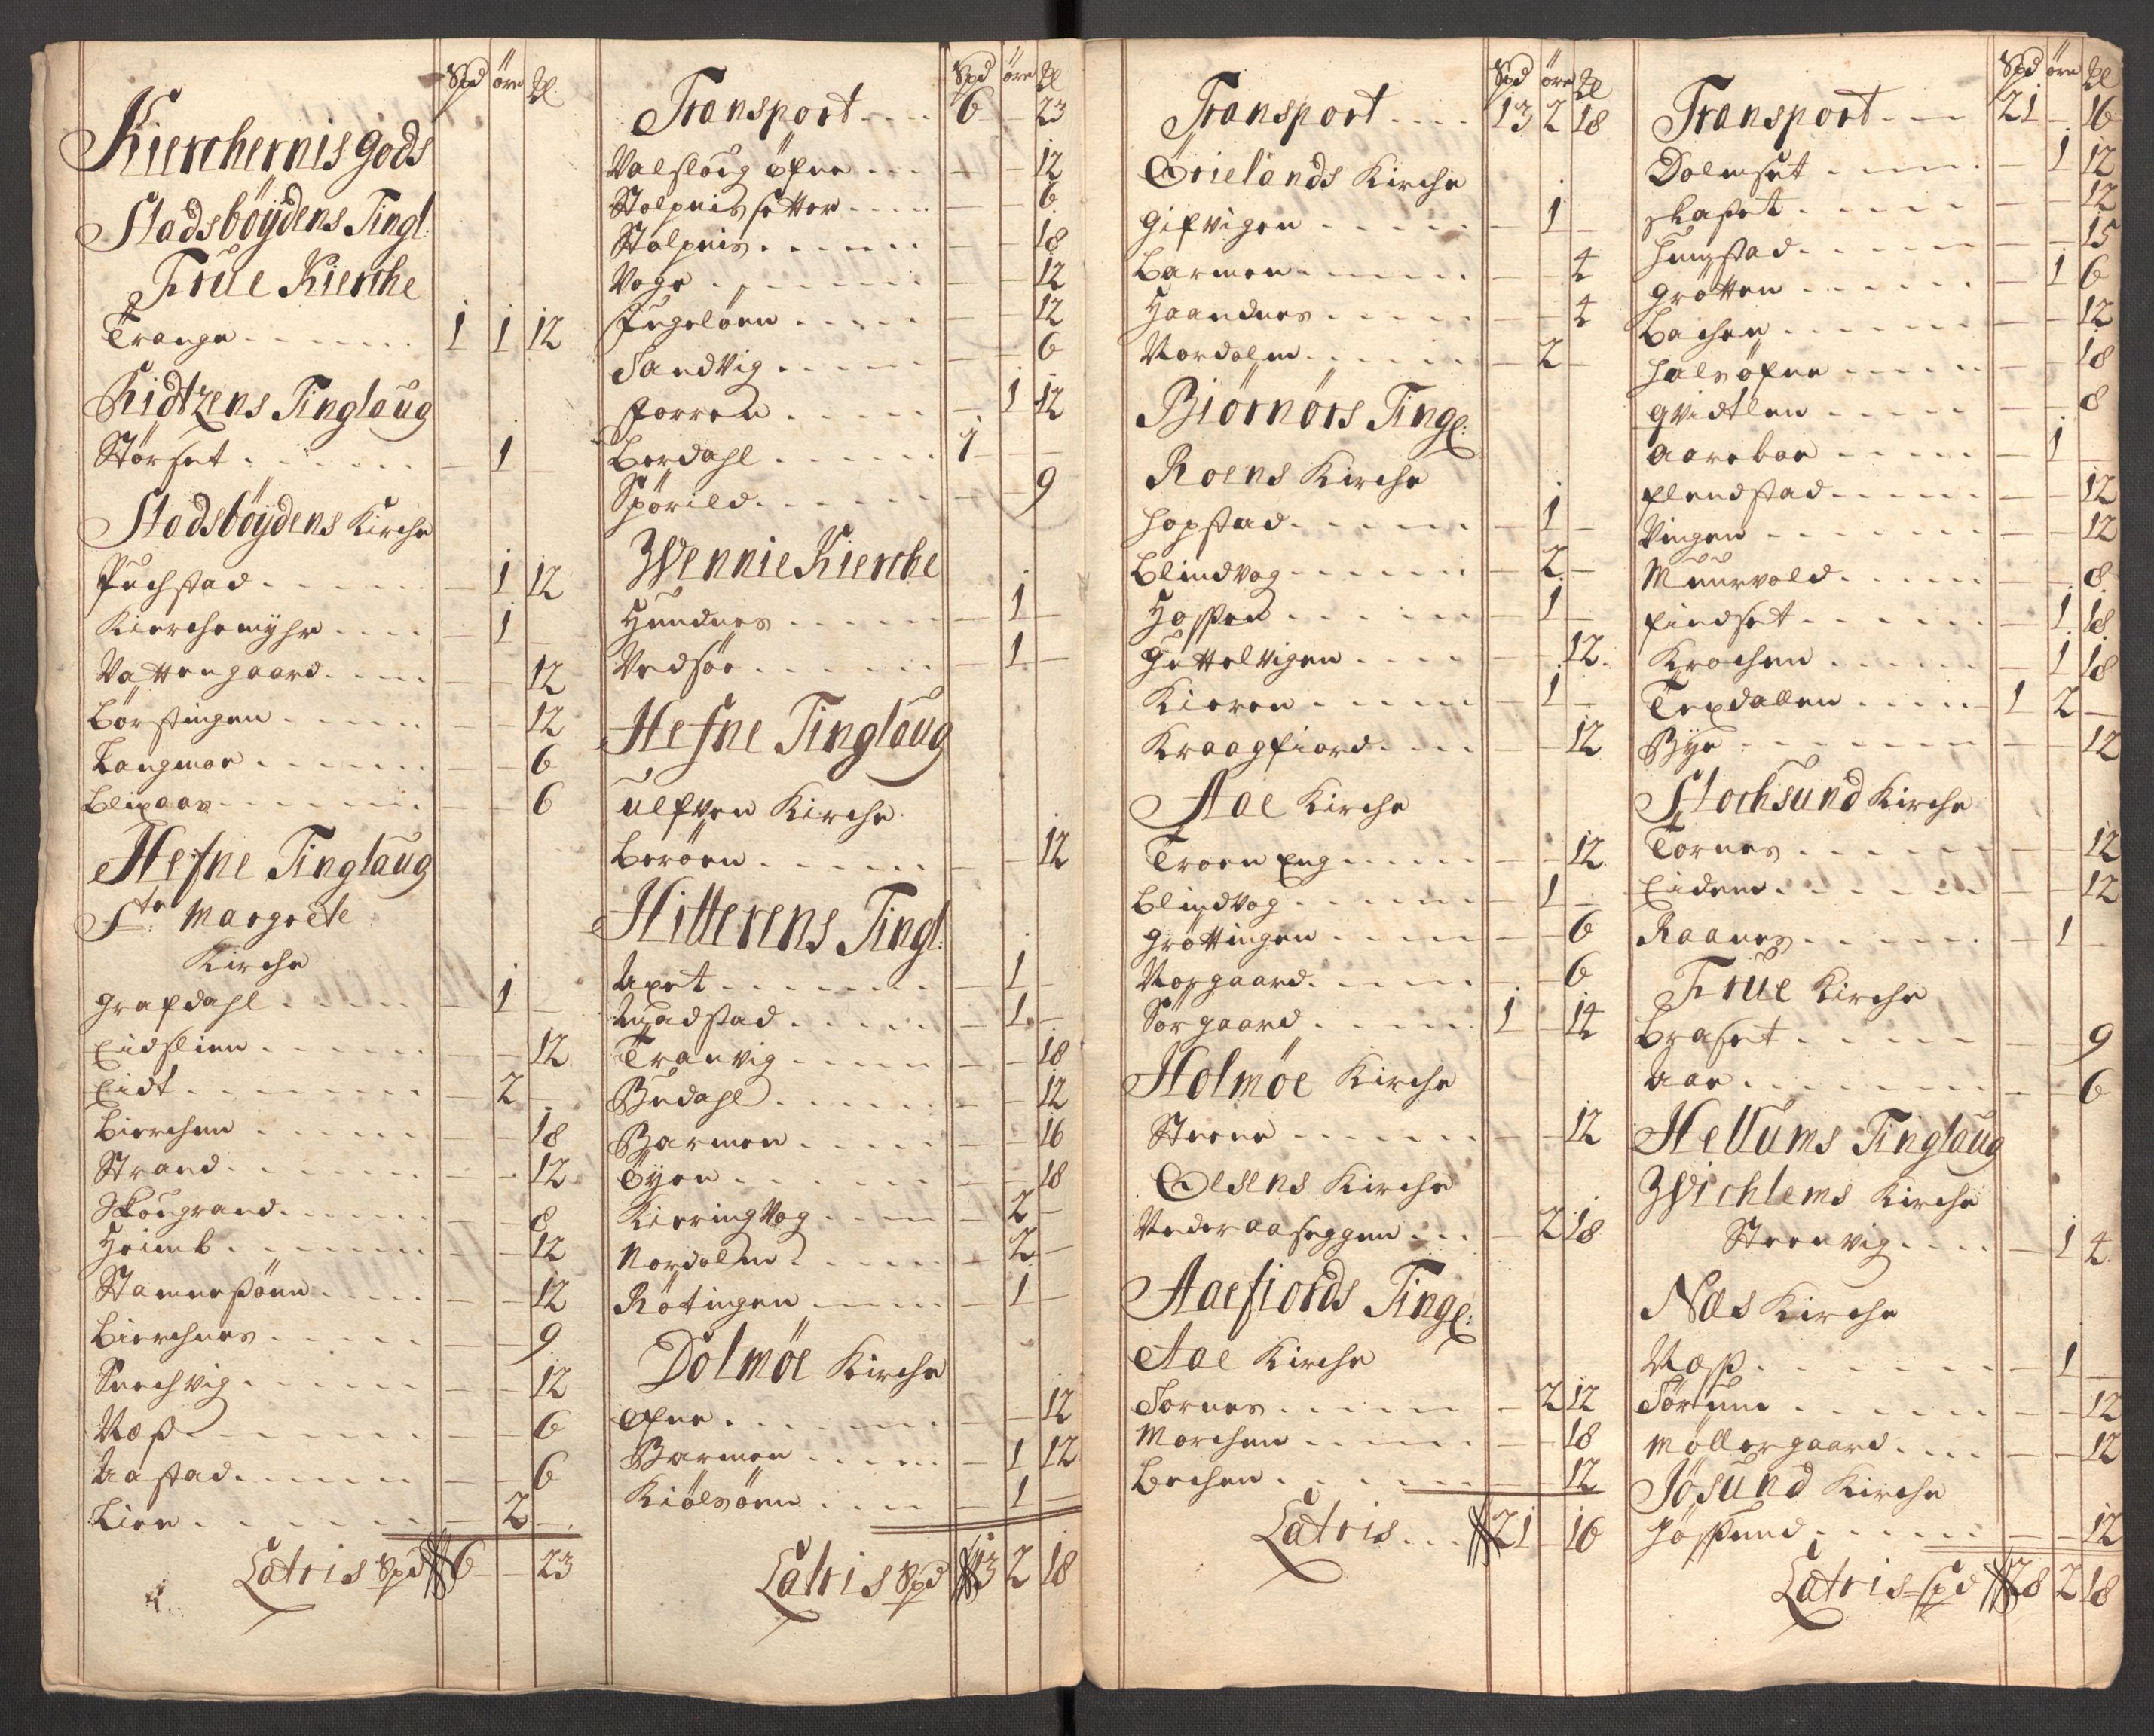 Spd öre ₰l
Kierchernis gods
Stadsböydens Tingl:
Frue Kierche
Trange 1 1 12
Ridtzens Tinglaug
Störset 1
Stadsböydens Kirche
Puchstad 1 12
Kierchemyhr 1
Vattengaard 12
Börstingen 12
Langmoe 6
Blixaas 6
Hefne Tinglaug
Ste Margrete
Kirche
Grafdahl 1
Eidslien 12
Eidt 2
Bierchen 18
Strand 12
Skougrand 8
Heimb 12
Stamnesöen 12
Bierchnes 9
Snechvig 12
Næss 6
Aastad 6
Lien 2
Latris Spd 6 - 23
Spd öre ₰l
Transport 6 - 23
Valslaug öfne 12
Stolpnessetter 6
Stolpnes 18
Vage 12
Fugelöen 12
Sandvig 6
Forren 1 12
Berdahl 1
Spörild 9
Wennie Kierche
Hundnes 1
Vedsöe 1
Hefne Tinglaug
Ulfven Kirche
Beröen 12
Hitterens Tingl:
Uxet 1
Ugadstad 1
Tranvig 18
Budahl 12
Barmen 16
Öyen 18
Kieringvog 2
Nordolm 2
Rötingen 1
Dolmöe Kirche
Öfne 12
Barmen 1 12
Kiölsöen 1
Latris Spd 13 2 18
Spd öre ₰l
Transport 13 2 18
Örielands Kirche
Gifvigen 1
Barmen 4
Haandnes 4
Nordolm 2
Biörnörs Tingl:
Roens Kirche
Hopstad 1
Blindvog 2
Hossen 1
Gettelvigen 12
Kieren 1
Kraagfiord 12
Aae Kirche
Troen Eng 12
Blindvog 1
Gröttingen 6
Norgaard 6
Sörgaard 1 - 14
Holmöe Kirche
Steene 12
Oesens Kirche
Nederaaseggen 2 18
Aaefiords Tingl:
Aae Kirche
Tornes 2 12
Morchen 18
Bechen 12
Latris 21 - 16
Spd öre ₰l
Transport 21 - 16
Dolmset 1 12
Skaset 12
Humstad 15
Grötten 1 6
Bachen 12
Halsöfne 18
Qvidtlen 8
Aareboe 1
Flendstad 12
Vingen 12
Muurvold 8
Findset 1 18
Krochen 1 18
Texdallen 1 2
Bye 12
Stochsund Kirche
Tornes 12
Eidem 12
Raanes 1
Frue Kirche
Braset 9
Aae 6
Hellums Tinglaug
Wichlems Kirche
Steenvig 1 4
Næs Kirche
Næss 1
Sörum 12
Möllergaard 12
Jösund Kirche
Jössund 12
Latris Spd 28 2 18